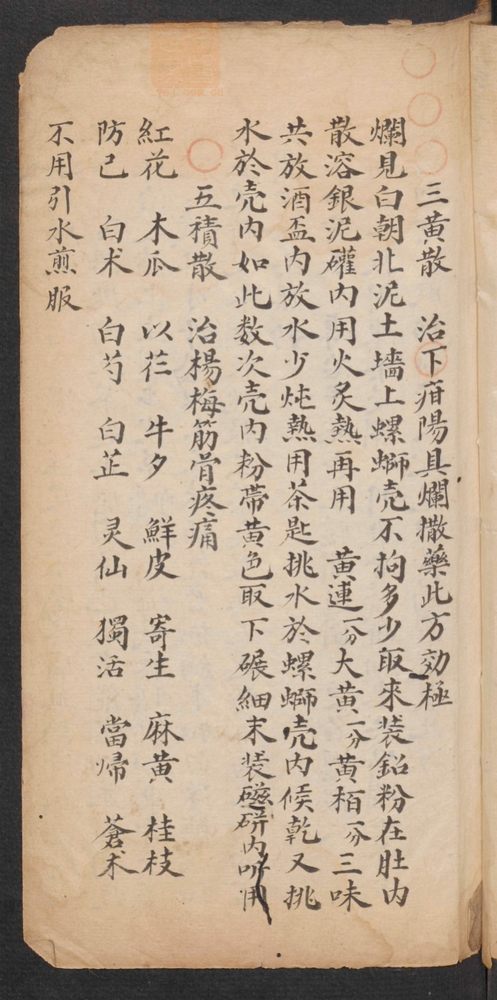 三黃散 治下疳陽具爛撒藥此方効極
爛見白朝北泥土墻上螺螄壳不拘多少取來裝鉛粉在肚内
散溶銀泥礶内用火炙熱再用 黃連一分大黃一分黃栢一分三味
共放酒盃内放水少炖熱用茶匙挑水於螺螄壳内候乾又挑
水於壳内如此数次壳内粉帶黃色取下碾細末装磁硑内听用
五積散 治楊梅筋骨疼痛
紅花 木瓜 以苡 牛夕 鮮皮 寄生 麻黃 桂枝
防己 白术 白芍 白芷 灵仙 獨活 當帰 蒼术
不用引水煎服